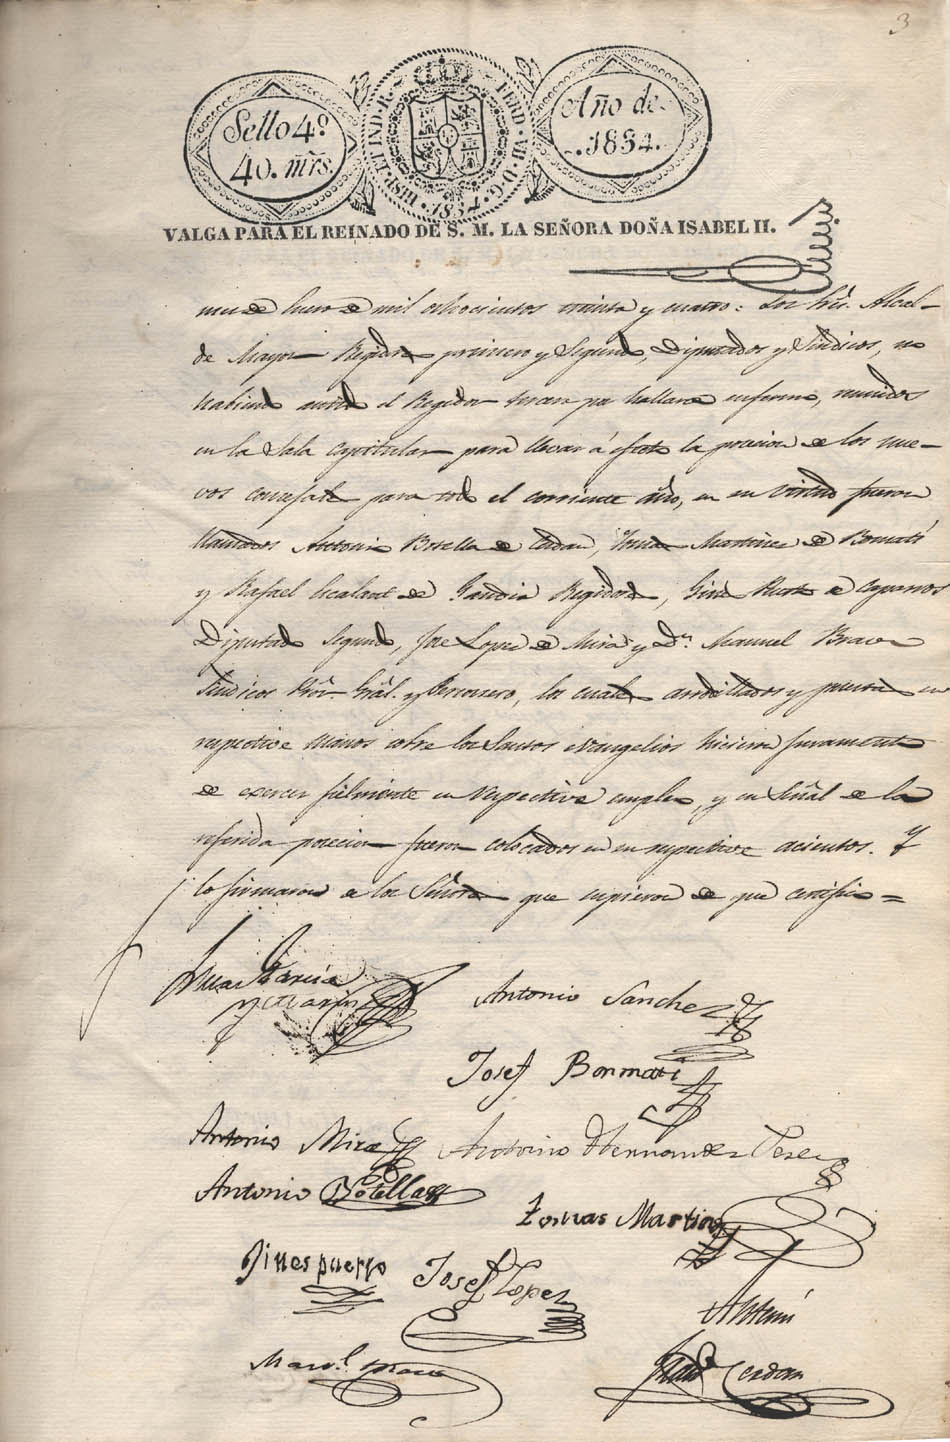 3
Sello 4º
40. mrs.
HISP. ET IND. R. FERD. VII. D. G. 1834.
Año de
1834.
VALGA PARA EL REINADO DE S. M. LA SEÑORA DOÑA ISABEL II.
de mil ochocientos treinta y cuatro: Los Sres. Alcal-
de Mayor Regidores primero y Segundo, Diputados y Sindicos, no
habiendo el Regidor por hallarse enfermo, reunidos
en la Sala Capitular para llevar á efecto la posecion de los nue-
vos para todo el corriente año, en su virtud fueron
llamados Antonio Botella de Cerdan, Tomas Martinez de Bonmati
y Rafael Escalant de Gandia Regidores, Gines Puerto de Caparros
Diputado Segundo, Jose Lopez de Mira y Dn. Manuel Bravo
Sindicos Pror. Gral. y Personero, los cuales arrodillados y puestas sus
respective manos sobre los Santos evangelios hicieron juramento
de exercer fielmente su respective empleo, y en Señal de la
referida posecion fueron colocados en su respective acientos. Y
lo firmaron de los Señores que supieron de que certifico =
Juan Garcia
y Marin
Antonio Sanchez
Josef Bonmati
Antonio Mira
Antonio Hernandez Perez
Antonio Botella
Tomas Martinez
Gines puerto
Josef Lopez
Antemi
Manl. Bravo
Cerdan